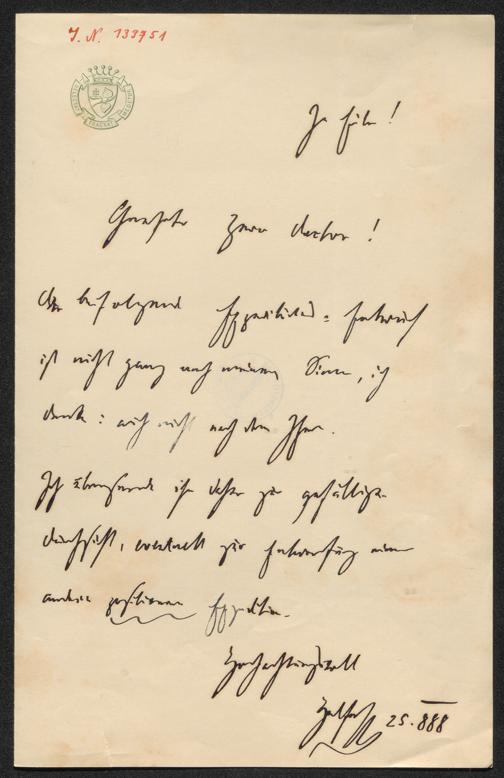 I. N. 133751
Geehrter Herr Doctor!
Der beifolgende Expeditions-Entwurf
ist nicht ganz nach meinem Sinn, ich
denke: auch nicht nach dem Ihren.
Ich übersende ihn daher zur gefälligen
Durchsicht, eventuell zur Entwerfung einer
andern positiveren Expedition.
Hochachtungsvoll
25. 888